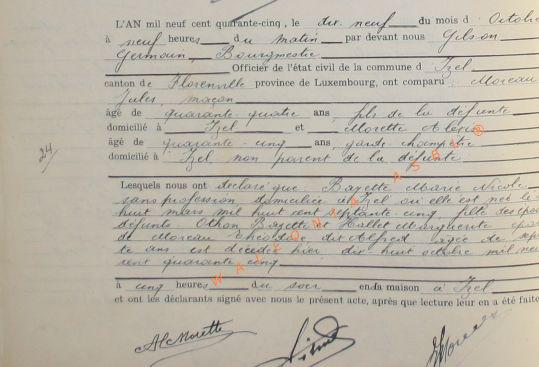 L'AN mil neuf cent quarante-cinq, le dix neuf du mois d' Octobre
à neuf heures du matin par devant nous Gilson
Germain, Bourgmestre
Officier de l'état civil de la commune d Izel
canton de Florenville province de Luxembourg, ont comparu: Moreau
Jules, maçon
âgé de quarante-quatre ans fils de la défunte
domicilié à Izel et Morette
âgé de quarante-cinq ans garde champêtre
24/
domicilié à Izel non parent de la défunte
Lesquels nous ont déclaré que: Bayette Marie Nicole
sans profession domiciliée à Izel où elle est née le
huit mars mil huit cent septante-cinq fille des époux
défunts Othon Bayette et Hallet Marguerite
de Moreau Théodore dit Alfred âgée de septante
te ans est décédée hier dix huit octobre mil neuf
cent quarante cinq
à cinq heures du soir en sa maison à Izel
et ont les déclarants signé avec nous le présent acte, après que lecture leur en a été faite
Al Morette
JMoreau
WALLONIA ASBL ®